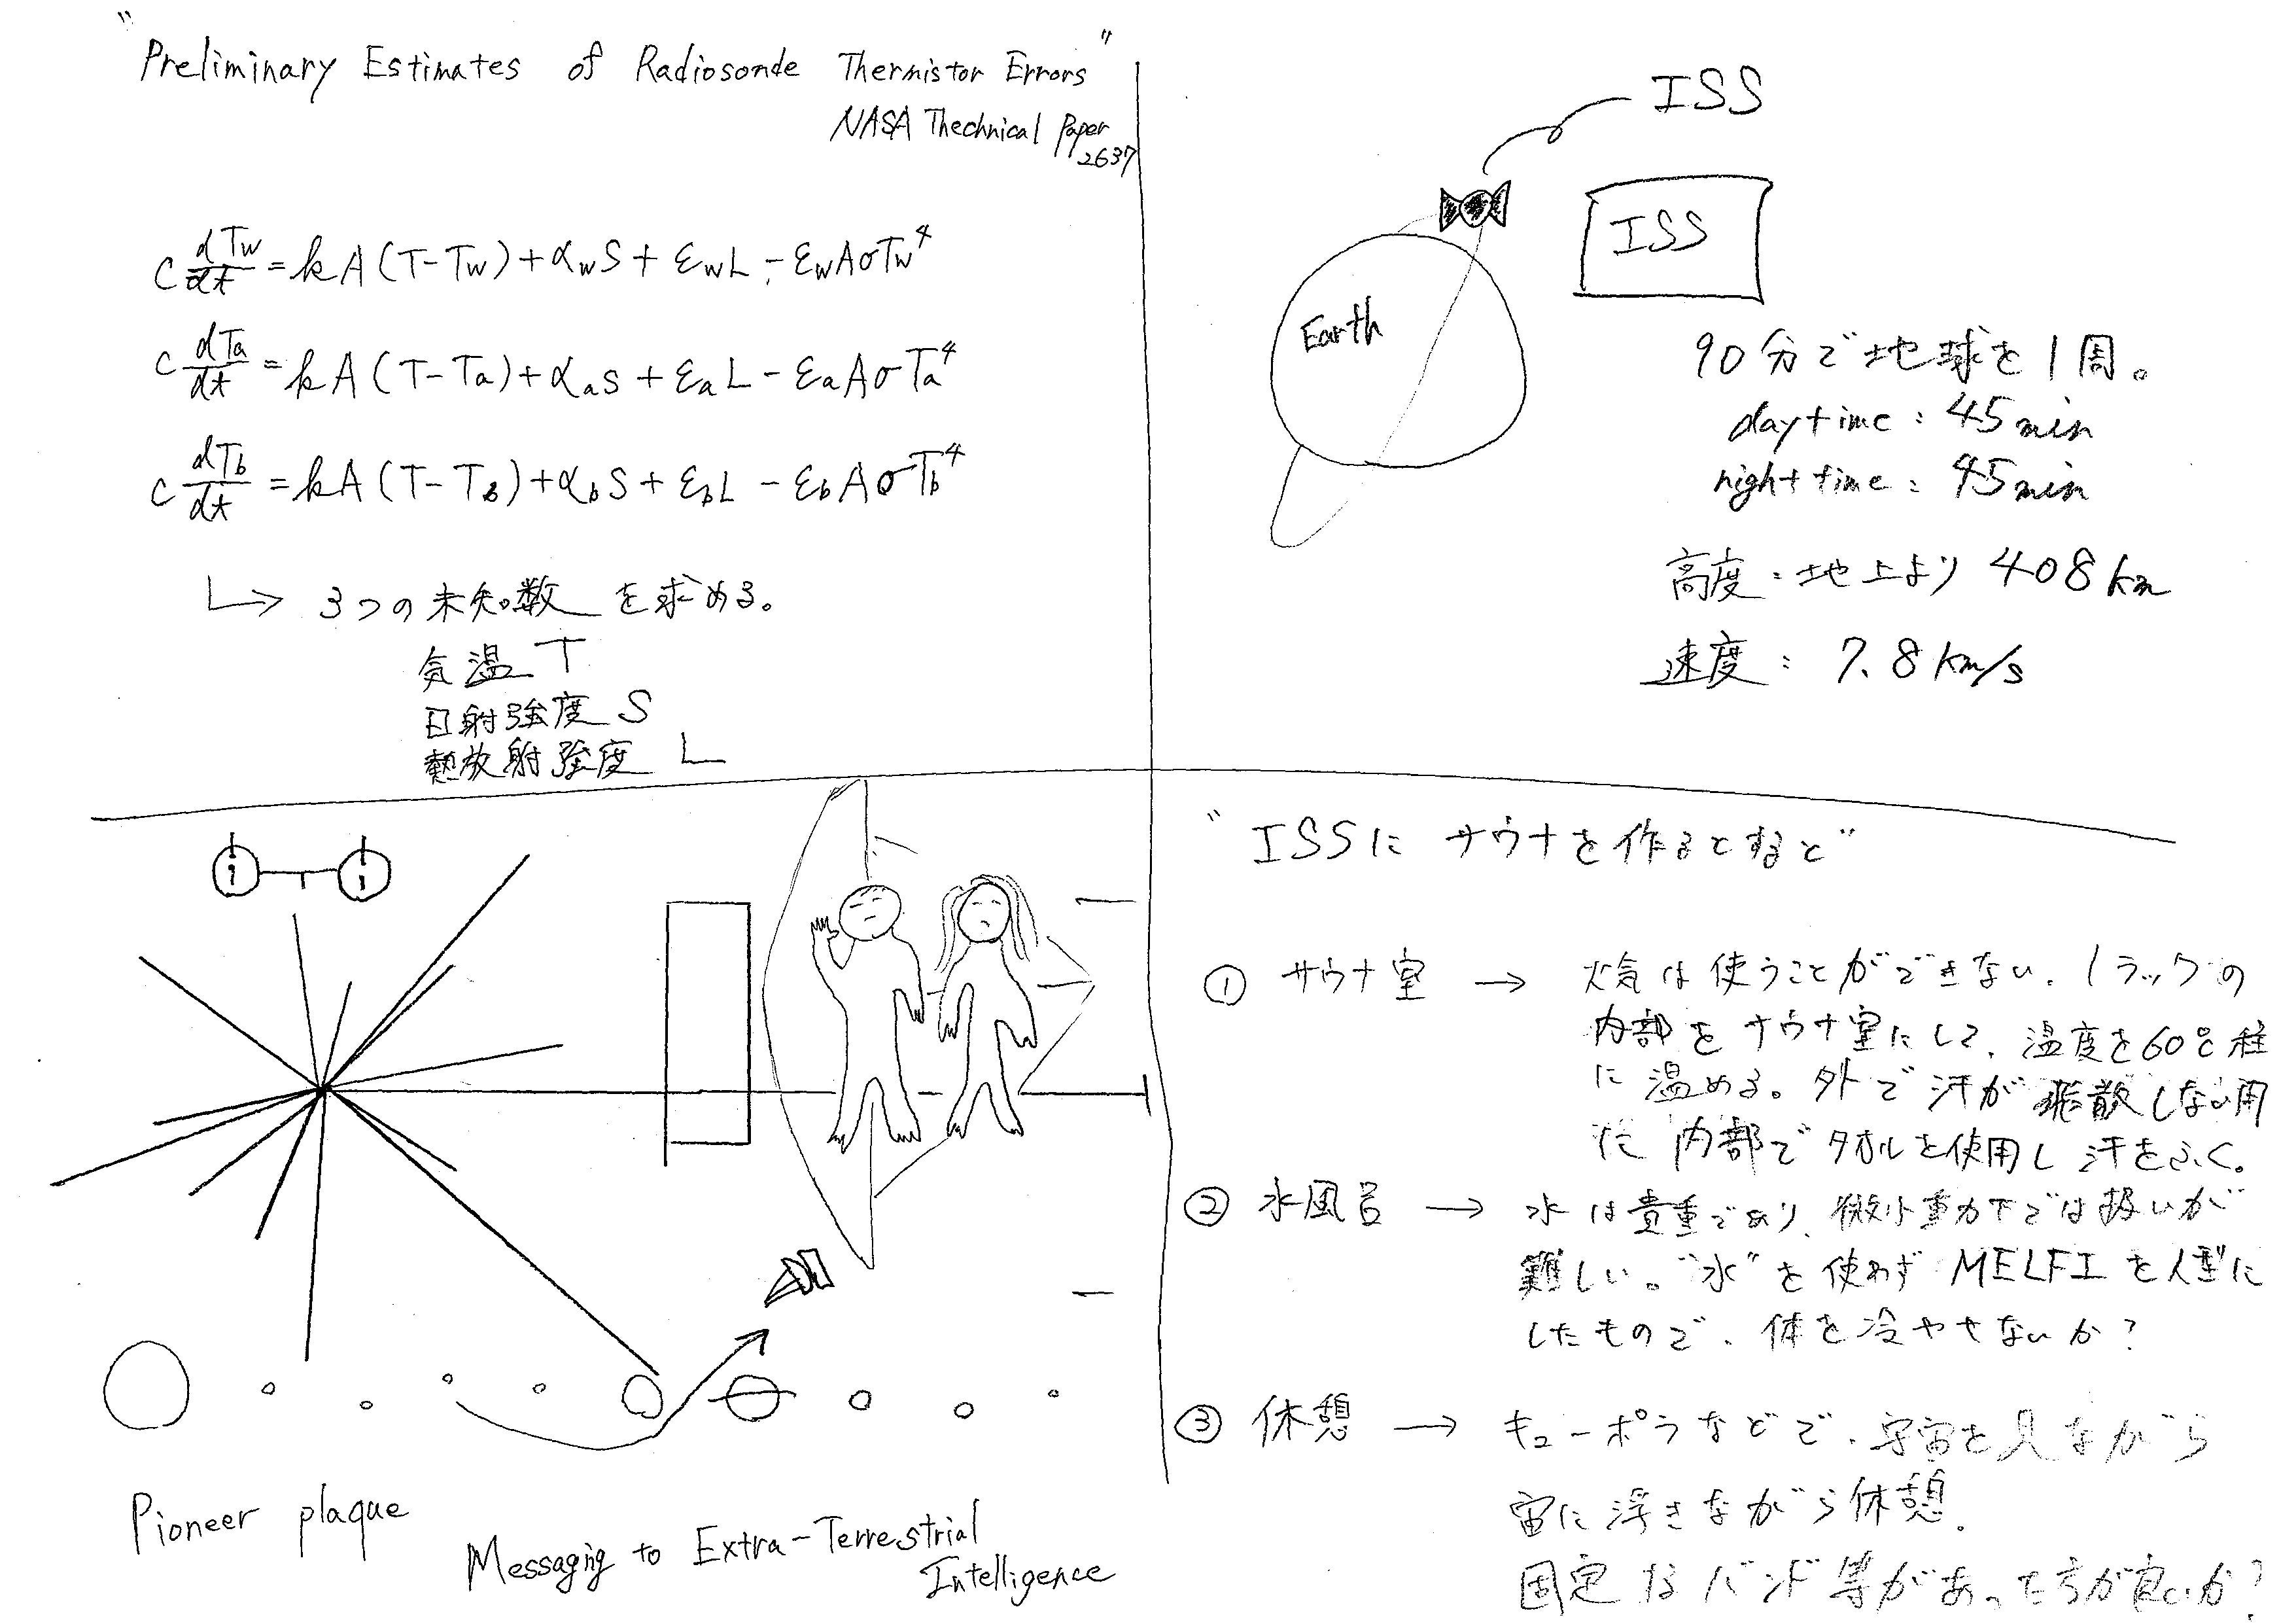 "Preliminary Estimates of Radiosonde Thermistor Errors"
NASA Thechnical Paper
2637
C dTw/dt = kA(T-Tw)+αwS+εwL-εwAσTw⁴
C dTa/dt = kA(T-Ta)+αaS+εaL-εaAσTa⁴
C dTb/dt = kA(T-Tb)+αbS+εbL-εbAσTb⁴
↳ 3つの未知数を求める。
気温 T
日射強度 S
熱放射強度 L
ISS
ISS
Earth
90分で地球を1周。
daytime : 45min
night time : 45min
高度:地上より 408km
速度: 7.8km/s
Pioneer plaque
Messaging to Extra-Terrestrial
Intelligence
"ISSに サウナを作るとすると"
① サウナ室 → 火気は使うことができない. 1ラックの
内部をサウナ室にして、温度を60℃程
に温める。外で汗が飛散しない用
に内部でタオルを使用し汗をふく。
② 水風呂 → 水は貴重であり、微小重力下では扱いが
難しい。"水"を使わず MELFIを人型に
したもので、体を冷やせないか?
③ 休憩 → キューポラなどで、宇宙を見ながら
宙に浮きながら休憩.
固定するバンド等があった方が良いか?